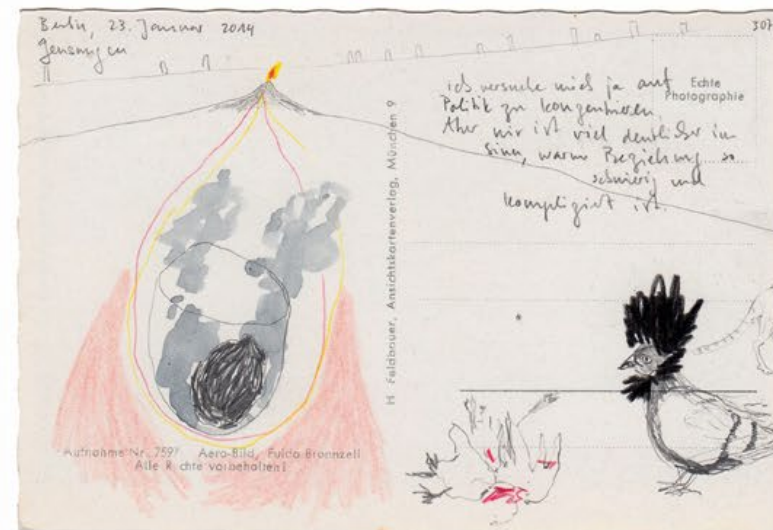 Berlin, 23. Januar 2014
307
ich versuche mich ja auf
Politik zu konzentrieren.
Aber mir ist viel deutlicher im
Sinn, warum Beziehung so
schwierig und
kompliziert ist.
Echte
Photographie
H. Feldbauer, Ansichtskartenverlag, München 9
Aufnahme Nr. 7597 Aero-Bild, Fulda-Bronnzell
Alle R chte vorbehalten!